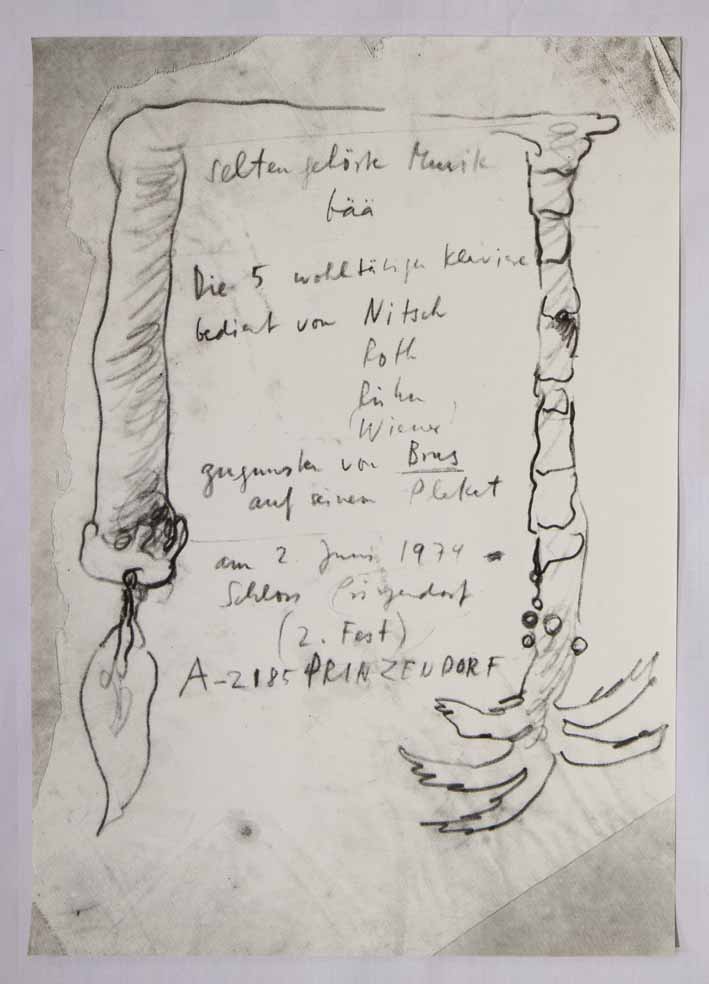 selten gehörte Musik
bää
Die 5 wohltätigen Klaviere
bedient von Nitsch
Roth
Rühm
(Wiener)
zugunsten von Brus
auf seinem Plakat
am 2. Juni 1974
Schloss Prinzendorf
(2. Fest)
A-2185 PRINZENDORF